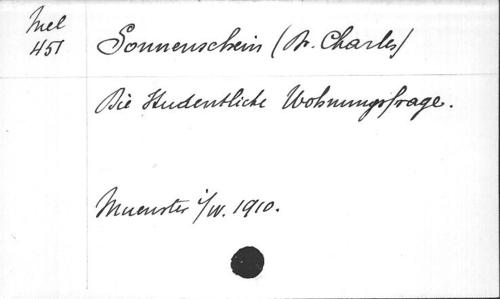 Mel
451
Sonnenschein (Dr. Charles)
Die Studentliche Wohnungsfrage.
Muenster i/W. 1910.